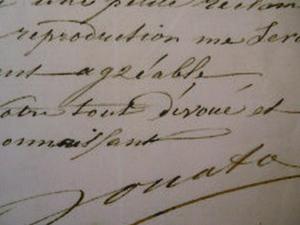 une petite réclam
reproduction me sera
ent agréable
Votre tout dévoué et
onnaissant